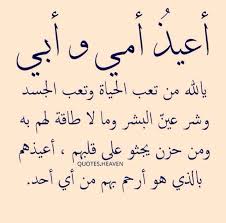 أعيذُ أمي و أبي
يالله من تعب الحياة وتعب الجسد
وشر عينّ البشر وما لا طاقة لهم به
ومن حزن يجثو على قلبهم ، أعيذهم
QUOTES.HEAVEN
بالذي هو أرحم بهم من أي أحد.